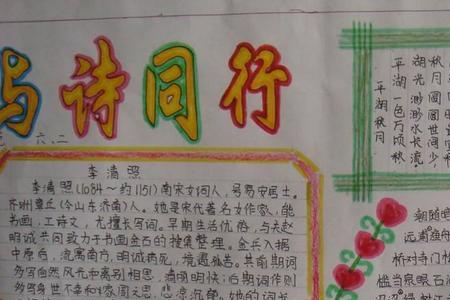 与诗同行
六、二
李清照
李清照(1084~约1151)南宋女词人,号易安居士。
齐州章丘(今山东济南)人。她是宋代著名女作家,能
书画,工诗文,尤擅长写词。早期生活优裕,与夫赵
明诚共同致力于书画金石的搜集整理。金兵入据
中原后,流寓南方,明诚病死,境遇孤苦。其前期词
多写自然风光和离别相思,清明明快;后期词作则
多写身世不幸和家国之思,悲凉沉痛。她的词
秋月圆圆世间少
湖光渺渺水长流
平湖一色万顷秋
平湖秋月
桥对寺门
槛当泉眼石